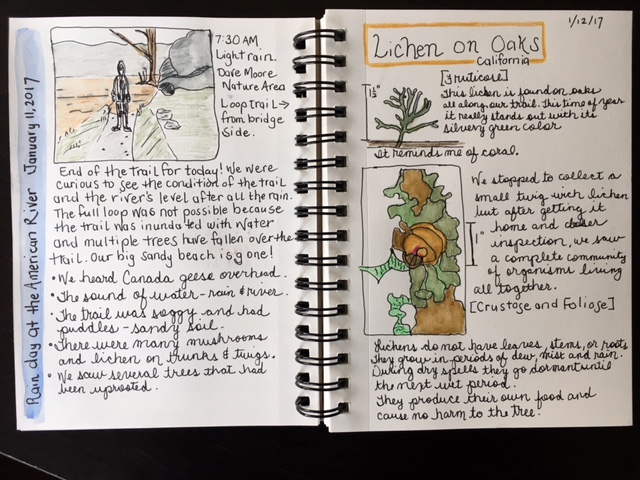 Rain day at the American River January 11, 2017
7:30 AM
Light rain.
Dave Moore
Nature Area
Loop trail →
from bridge
side.
End of the trail for today! We were
curious to see the condition of the trail
and the river's level after all the rain.
The full loop was not possible because
the trail was inundated with water
and multiple trees have fallen over the
trail. Our big sandy beach is gone!
• We heard Canada geese overhead.
• The sound of water - rain & river.
• The trail was soggy and had
puddles - sandy soil.
• There were many mushrooms
and lichen on trunks & twigs.
• We saw several trees that had
been uprooted.
1/12/17
Lichen on Oaks
California
[Fruticose]
This lichen is found on oaks
all along our trail. This time of year
it really stands out with its
silvery green color
It reminds me of coral.
We stopped to collect a
small twig with lichen
but after getting it
home and closer
inspection, we saw
a complete community
of organisms living
all together.
1"
[Crustose and Foliose]
Lichens do not have leaves, stems, or roots
They grow in periods of dew, mist and rain.
During dry spells they go dormant until
the next wet period.
They produce their own food and
cause no harm to the tree.